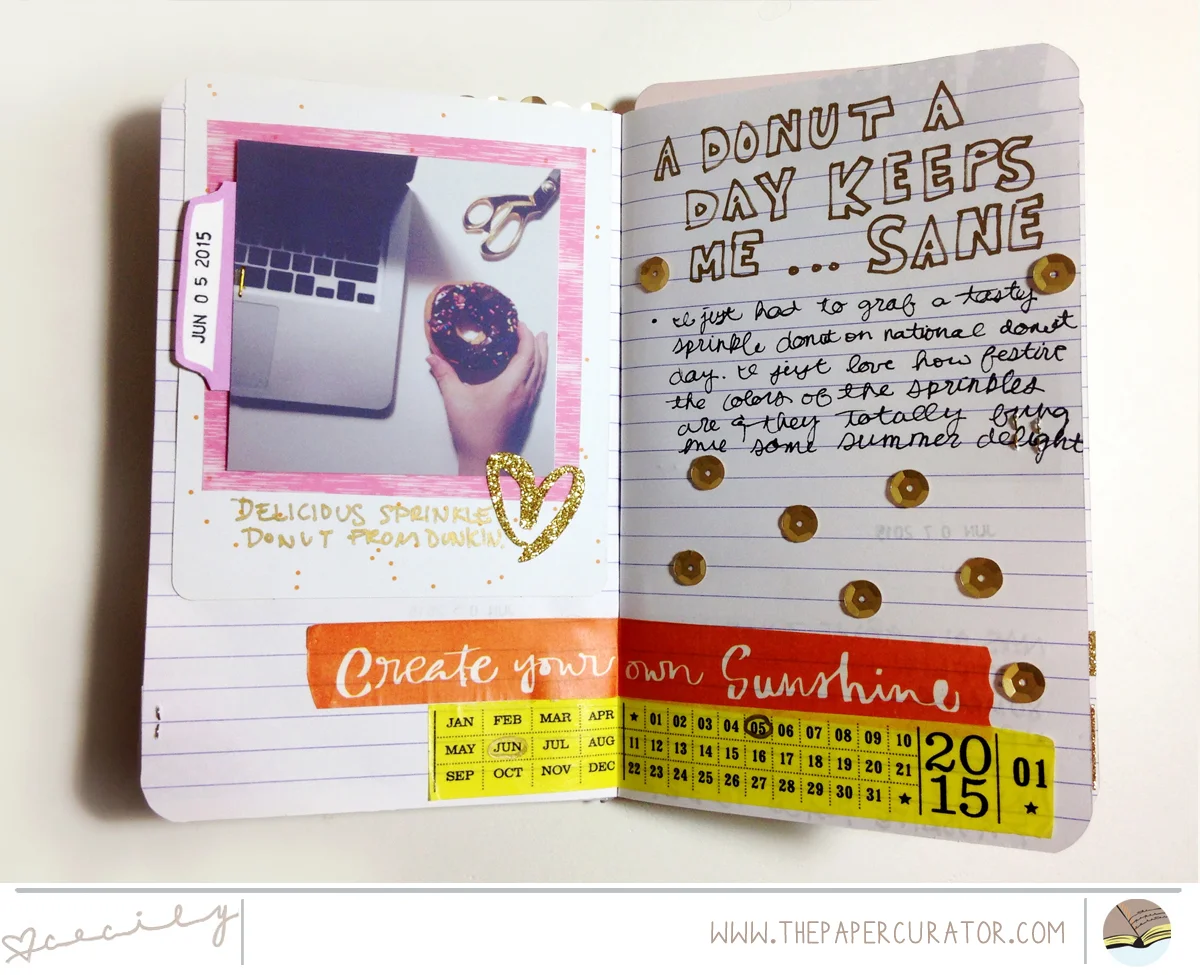 JUN 05 2015
DELICIOUS SPRINKLE
DONUT FROM DUNKIN.
A DONUT A
DAY KEEPS
ME ... SANE
• I just had to grab a tasty
sprinkle donut on national donut
day. I just love how festive
the colors of the sprinkles
are & they totally bring
me some summer delight
JUN 07 2015
Create your own Sunshine
JAN FEB MAR APR ★ 01 02 03 04 05 06 07 08 09 10
MAY JUN JUL AUG 11 12 13 14 15 16 17 18 19 20 21
SEP OCT NOV DEC 22 23 24 25 26 27 28 29 30 31 ★
20
15
01
★
cecily
WWW.THEPAPERCURATOR.COM